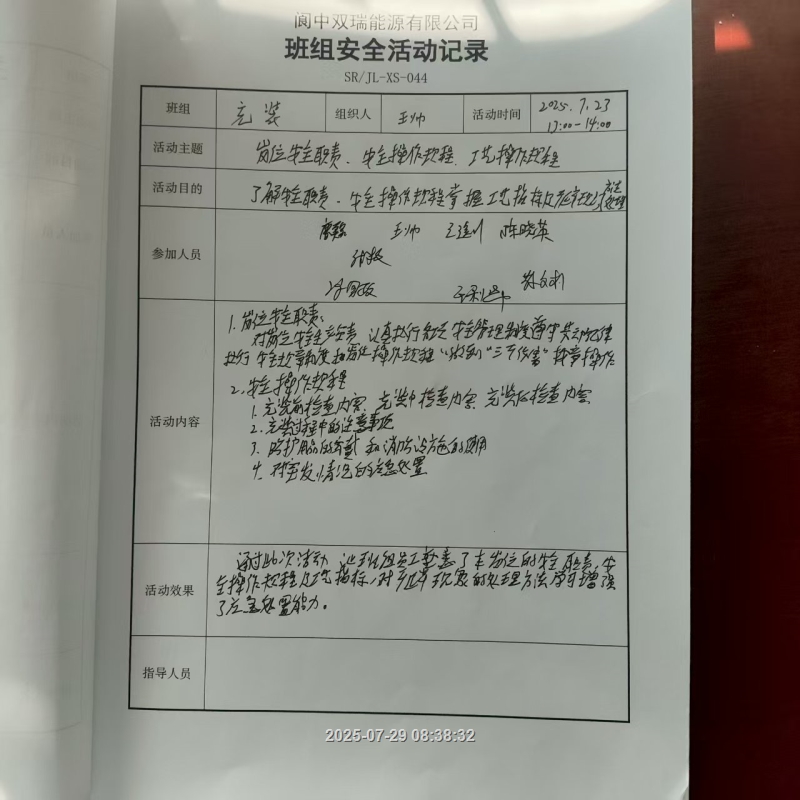 阆中双瑞能源有限公司
班组安全活动记录
SR/JL-XS-044
班组 充装 组织人 王帅 活动时间 2025.7.23
13:00-14:00
活动主题 岗位安全职责、安全操作规程、工艺操作规程
活动目的 了解安全职责、安全操作规程掌握工艺指标及异常现象应急处理
参加人员 王帅 陈晓英
活动内容
1. 岗位安全职责:
对岗位安全生产负责,认真执行各项安全管理制度遵守劳动纪律
执行安全规章制度和岗位操作规程"做到"三不伤害"
2. 安全操作规程
1. 充装前检查内容、充装中检查内容、充装后检查内容
2. 充装过程中的注意事项
3. 防护用品的穿戴和消防设施的使用
4. 对突发情况的应急处置
活动效果
通过此次活动,让班组员工熟悉了本岗位的安全职责,安
全操作规程及工艺指标,对异常现象的处理方法学习增强
了应急处置能力。
指导人员
2025-07-29 08:38:32